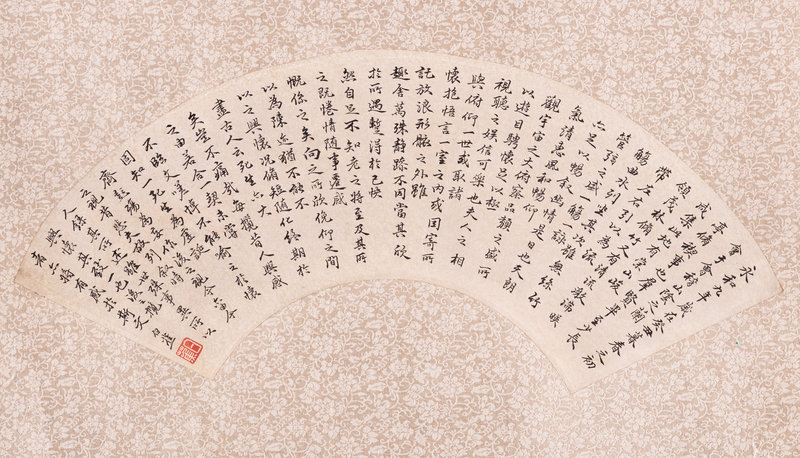 永和九年歲在癸丑暮春之初
會于會稽山陰之蘭
亭脩禊事也群賢畢至少長
咸集此地有崇山峻
領茂林脩竹又有清流激湍暎
帶左右引以為流
觴曲水列坐其次雖無絲竹
管弦之盛一觴一詠
亦足以暢敘幽情是日也天朗
氣清惠風和暢仰
觀宇宙之大俯察品類之盛所
以遊目騁懷足以極
視聽之娛信可樂也夫人之相
與俯仰一世或取諸
懷抱悟言一室之內或因寄所
託放浪形骸之外雖
趣舍萬殊靜躁不同當其欣
於所遇蹔得於己快
然自足不知老之將至及其所
之既惓情隨事遷感
慨係之矣向之所欣俛仰之間
以為陳迹猶不能不
以之興懷況脩短隨化終期於
盡古人云死生亦大
矣豈不痛哉每攬昔人興感
之由若合一契未嘗
不臨文嗟悼不能喻之於懷
固知一死生為虛誕
齊彭殤為妄作後之視今亦由今
之視昔悲夫故列敘時
人錄其所述雖世殊事異所以
興懷其致一也後之攬
者亦將有感於斯文